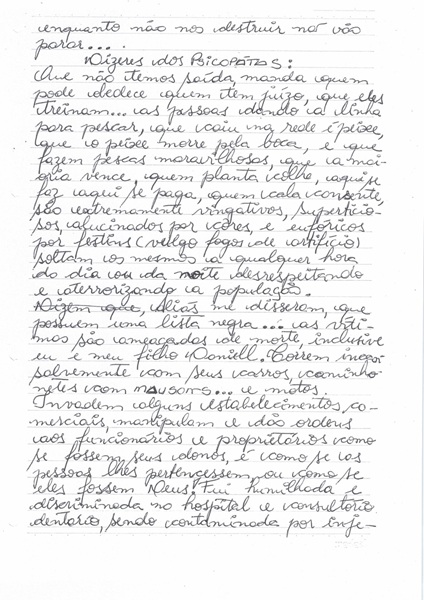 enquanto não nos destruir não vão
parar....
Dizeres dos PSICOPATAS:
Que não temos saída, manda quem
pode obedece quem tem juízo, que eles
treinam... as pessoas dando a linha
para pescar, que caiu na rede é peixe,
que o peixe morre pela boca, e que
fazem pescas maravilhosas, que a ma-
gia vence, quem planta colhe, aqui se
faz aqui se paga, quem cala consente,
são extremamente vingativos, supersticio-
sos, alucinados por cores, e eufóricos
por festins (vulgo fogos de artifício)
soltam os mesmos a qualquer hora
do dia ou da noite desrespeitando
e aterrorizando a população.
Dizem que, Aliás me disseram, que
possuem uma lista negra... as víti-
mas são ameaçadas de morte, inclusive
eu e meu filho Daniell. Correm
com seus carros, caminho-
netes com ... e motos.
Invadem alguns estabelecimentos, co-
merciais, manipulam e dão ordens
aos funcionários e proprietários como
se fossem seus donos, é como se as
pessoas lhes pertencessem, ou como se
eles fossem Deus! Fui humilhada e
discriminada no hospital e consultório
dentário, sendo contaminada por inje-